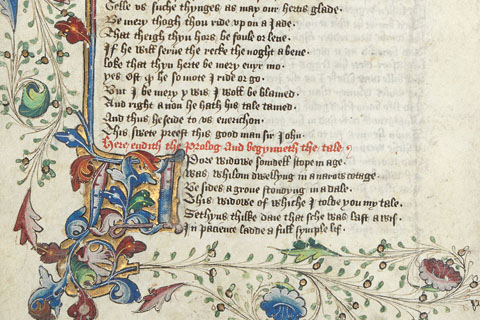 Telle us suche thynges as may our hertis glade.
Be mery thogh thou ride up on a Jade.
That theigh thyn hors be foule or lene.
If he will serue the recke the noght a bene.
loke that thyn herte be mery euyr mo.
yes. ost. q he so mote I ride or go.
But I be mery y wis I woll be blamed.
And right a non he hath his tale tamed.
And thus he seide to vs euerichon.
This swete preest this good man sir John.
Here endith the Prolog And begynneth the tale
A Pore widowe somdell stope in age.
was whilom dwellyng in a narow cotage.
Be sides a groue stondyng in a dale.
This widowe of which I tolde you my tale.
Sethyns thilke daie that sche was last a wif.
In pacience ladde a full symple lif.